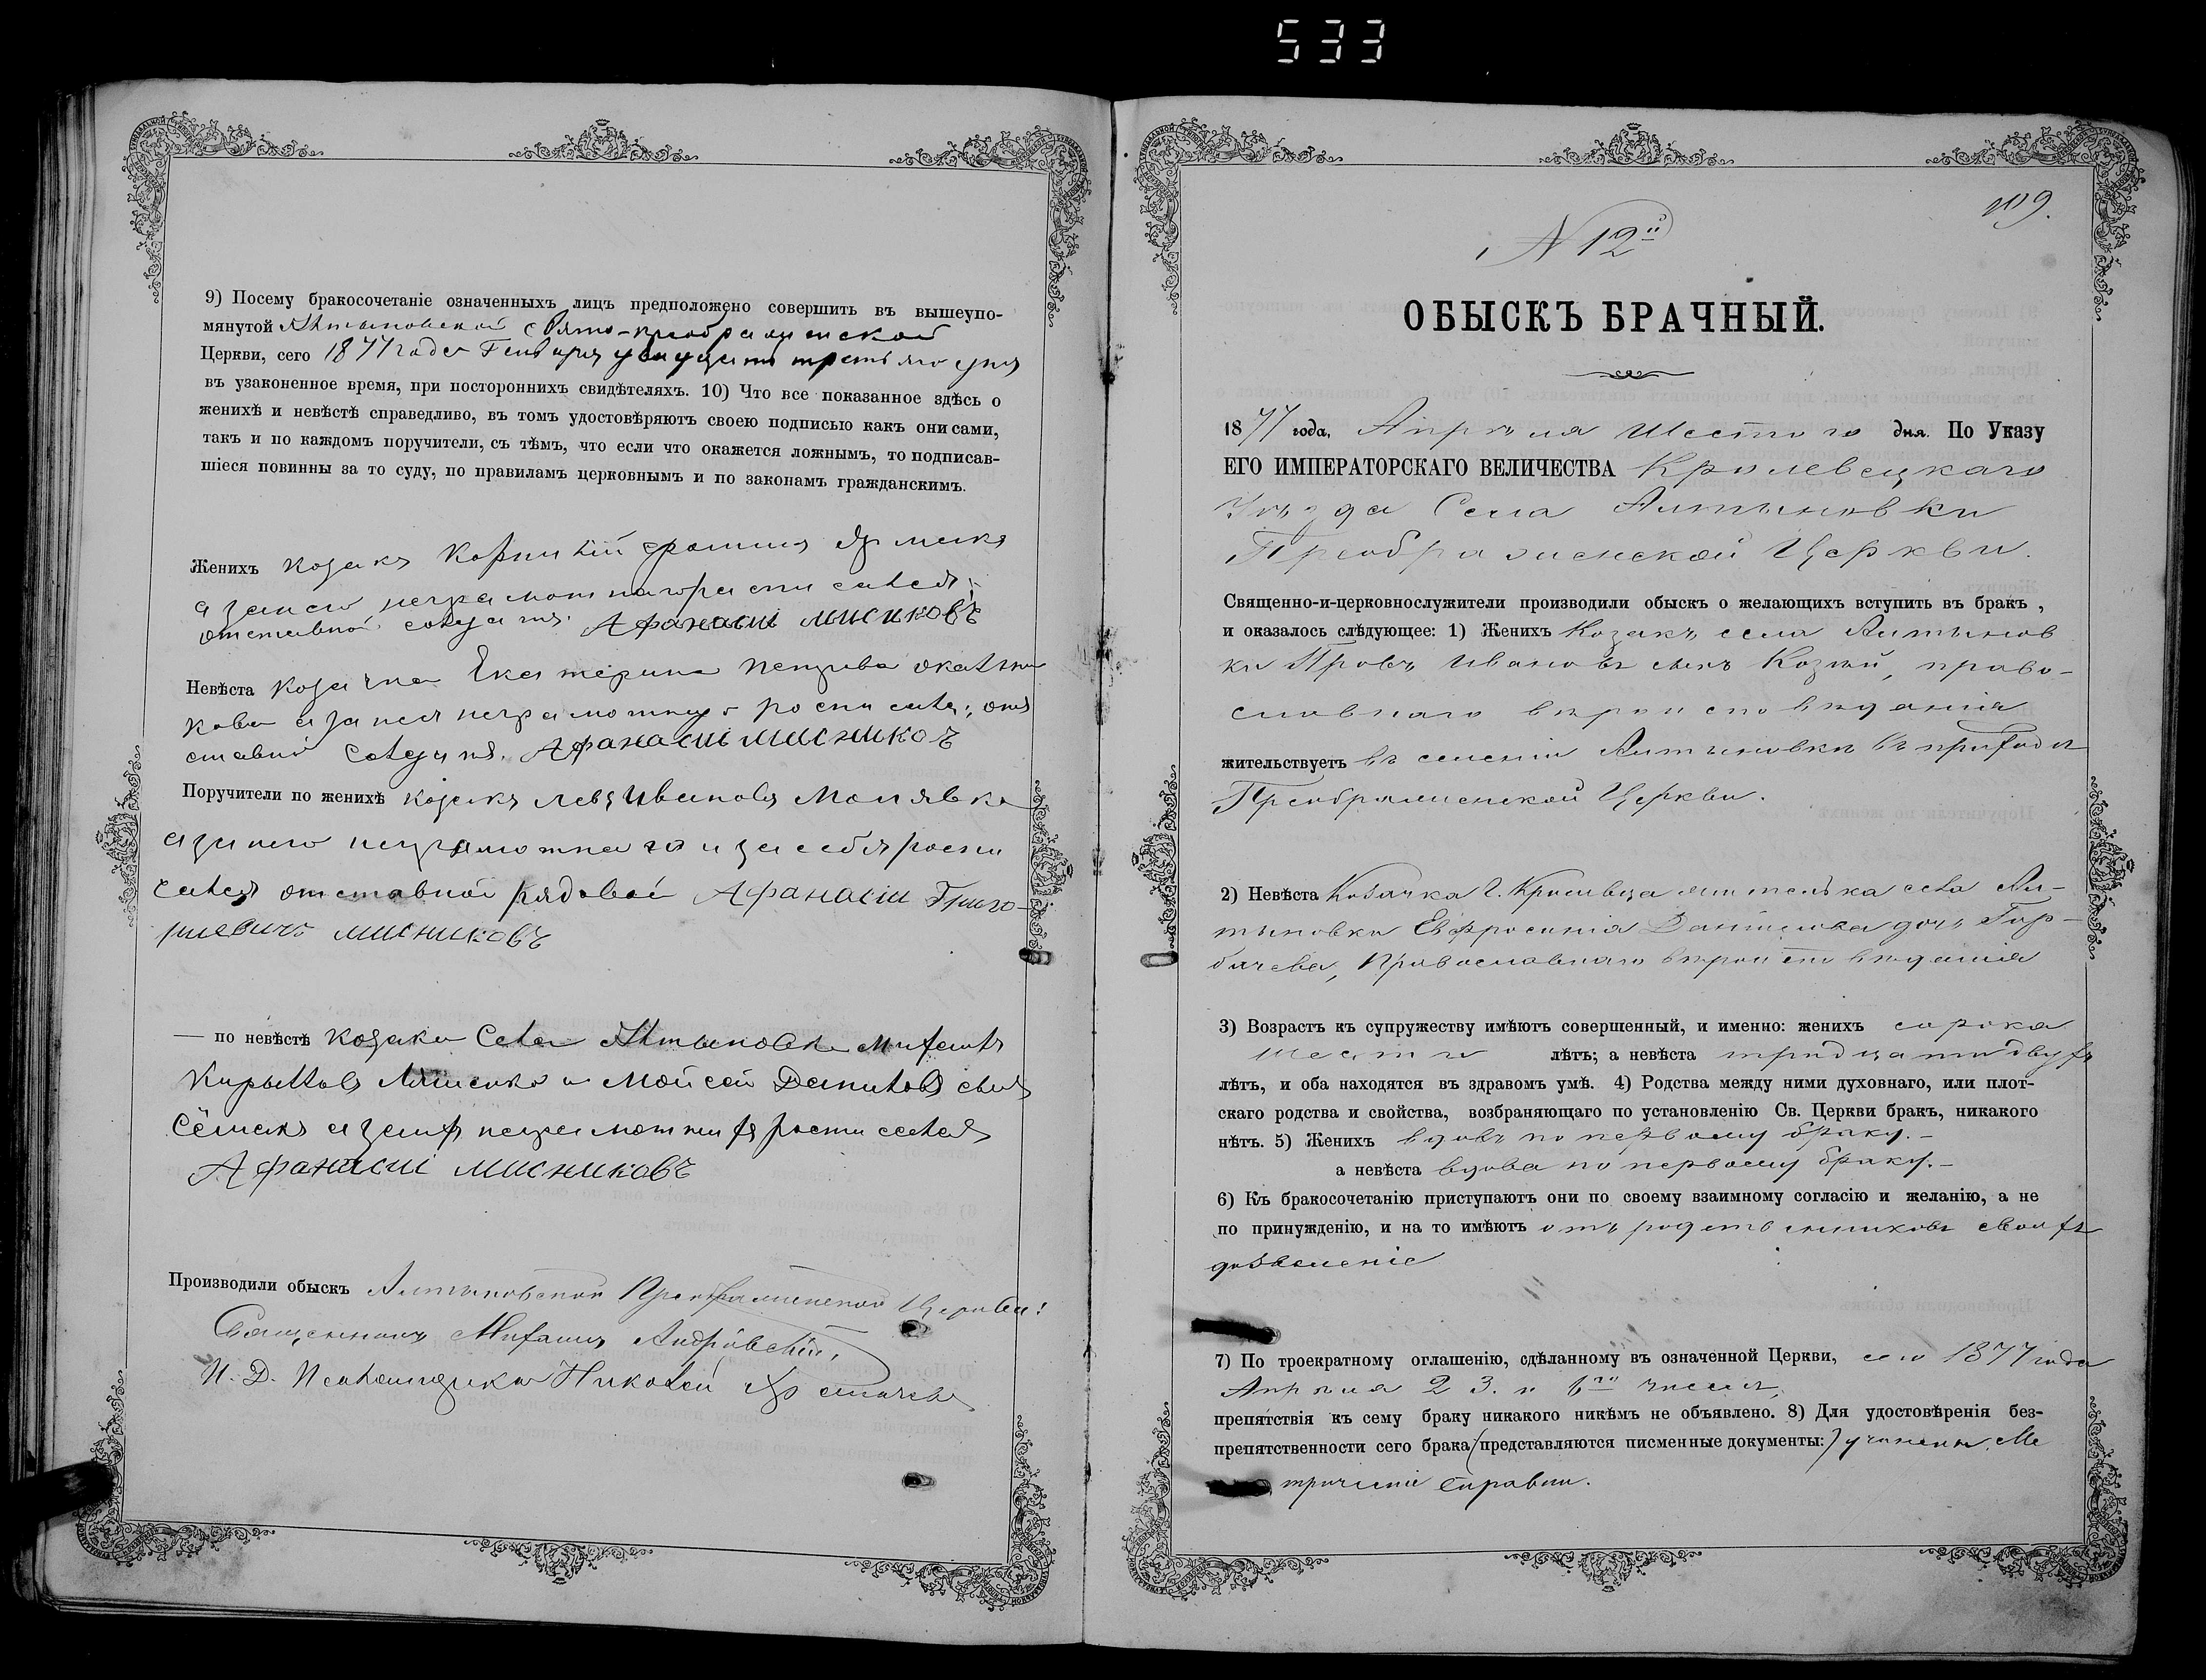 533
9) Посему бракосочетаніе означенныхъ лицъ предположено совершить въ вышеупо-
мянутой Алтыновской Свято-преображенской
Церкви, сего 1877 года Генваря двадцать третьяго дня
въ узаконенное время, при постороннихъ свидѣтеляхъ. 10) Что все показанное здѣсь о
женихѣ и невѣстѣ справедливо, въ томъ удостовѣряютъ своею подписью какъ они сами,
такъ и по каждомъ поручители, съ тѣмъ, что если что окажется ложнымъ, то подписав-
шіеся повинны за то суду, по правиламъ церковнымъ и по законамъ гражданскимъ.
Женихъ козакъ Корнилій
а занего неграмотнаго росписался
отставной солдатъ. Афанасіи мисниковъ
Невѣста козачка Екатерина
а занея неграмотную росписался, от
ставной солдатъ. Афанасіи мисников
Поручители по женихѣ козакъ Левъ Ивановъ Малявка
а занего неграмотнаго и за себя роспи
сался отставной рядовой Афанасіи Григо-
риевичъ мисниковъ
— по невѣстѣ козаки села Алтыновки Михаилъ
Кириловъ Ляшенко и Мойсей Даниловъ сынъ
Сёмакъ а заихъ неграмотныхъ росписался
Афанасиі мисниковъ
Производили обыскъ Алтыновской Преображенской Церкви:
Священникъ Михаилъ Андріевскій,
И. Д. Псаломщика Николай
109.
N 12й
ОБЫСКЪ БРАЧНЫЙ.
1877 года, Апрѣля Шестого дня. По Указу
ЕГО ИМПЕРАТОРСКАГО ВЕЛИЧЕСТВА Кролевецкаго
Уѣзда Села Алтыновки
Преображенской Церкви.
Священно-и-церковнослужители производили обыскъ о желающихъ вступить въ бракъ ,
и оказалось слѣдующее: 1) Женихъ Козакъ села Алтынов
ки Провъ Ивановъ сынъ Козѣй, право-
славнаго вѣроисповѣданія
жительствуетъ въ селеніи Алтыновкѣ въ приходѣ
Преображенской Церкви.
2) Невѣста Козачка г. Кролевца жителька села Ал-
тыновки Евфросинія Данилова дочь Гор-
бачева, Православнаго вѣроисповѣданія
3) Возрастъ къ супружеству имѣютъ совершенный, и именно: женихъ сорока
шести лѣтъ; а невѣста тридцати двухъ
лѣтъ, и оба находятся въ здравомъ умѣ. 4) Родства между ними духовнаго, или плот-
скаго родства и свойства, возбраняющаго по установленію Св. Церкви бракъ, никакого
нѣтъ. 5) Женихъ вдовъ по первому браку.—
а невѣста вдова по первому браку.—
6) Къ бракосочетанію приступаютъ они по своему взаимному согласію и желанію, а не
по принужденію, и на то имѣютъ отъ родственниковъ своихъ
дозволеніе
7) По троекратному оглашенію, сдѣланному въ означенной Церкви, сего 1877 года
Апрѣля 2 3. и 6го числа,
препятствія къ сему браку никакого никѣмъ не объявлено. 8) Для удостовѣренія без-
препятственности сего брака (представляются писменные документы:) учинены Ме
трическіе справки.